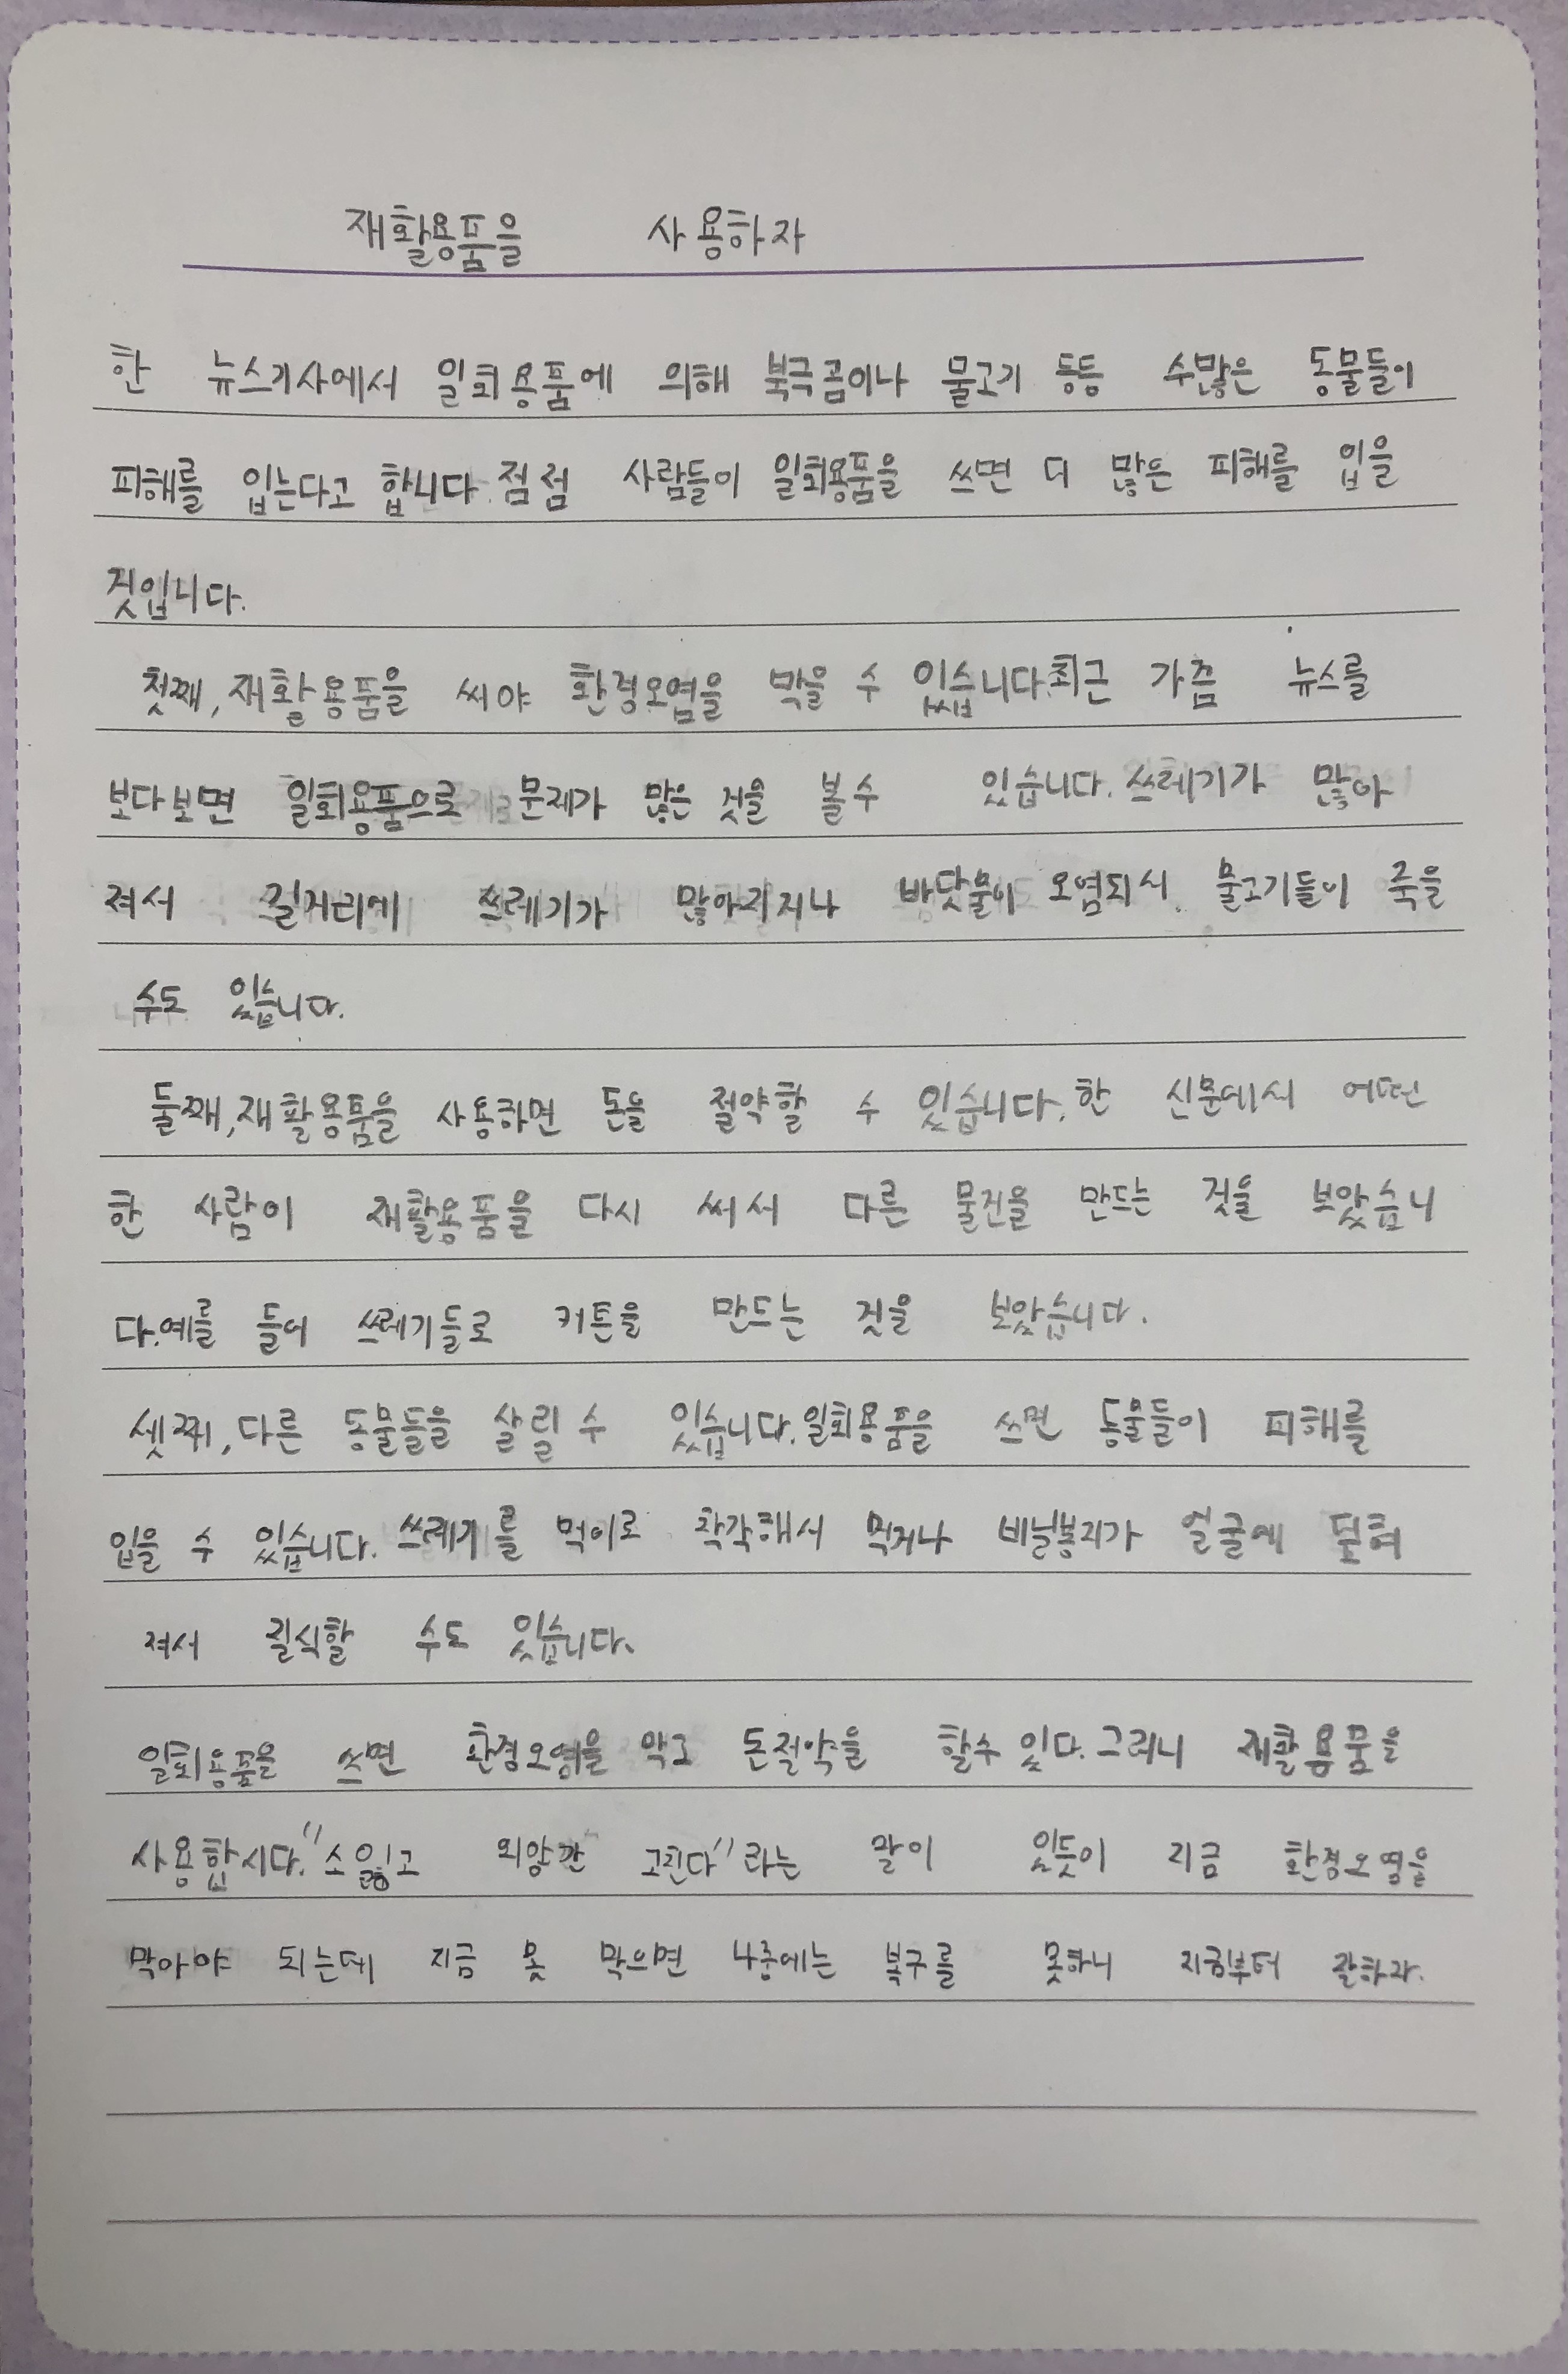 재활용품을 사용하자
한 뉴스기사에서 일회용품에 의해 북극곰이나 물고기 등등 수많은 동물들이
피해를 입는다고 합니다. 점점 사람들이 일회용품을 쓰면 더 많은 피해를 입을
것입니다.
첫째, 재활용품을 써야 환경오염을 막을 수 있습니다. 최근 가끔 뉴스를
보다보면 일회용품으로 문제가 많은 것을 볼수 있습니다. 쓰레기가 많아
져서 길거리에 쓰레기가 많아지거나 바닷물이 오염되서 물고기들이 죽을
수도 있습니다.
둘째, 재활용품을 사용하면 돈을 절약할 수 있습니다. 한 신문에서 어떤
한 사람이 재활용품을 다시 써서 다른 물건을 만드는 것을 보았습니
다. 예를 들어 쓰레기들로 커튼을 만드는 것을 보았습니다.
셋째, 다른 동물들을 살릴 수 있습니다. 일회용품을 쓰면 동물들이 피해를
입을 수 있습니다. 쓰레기를 먹이로 착각해서 먹거나 비닐봉지가 얼굴에
져서 질식할 수도 있습니다.
일회용품을 쓰면 환경오염을 막고 돈절약을 할수 있다. 그러니 재활용품을
사용합시다. "소 잃고 외양간 고친다"라는 말이 있듯이 지금 환경오염을
막아야 되는데 지금 못 막으면 나중에는 복구를 못하니 지금부터 잘하자.